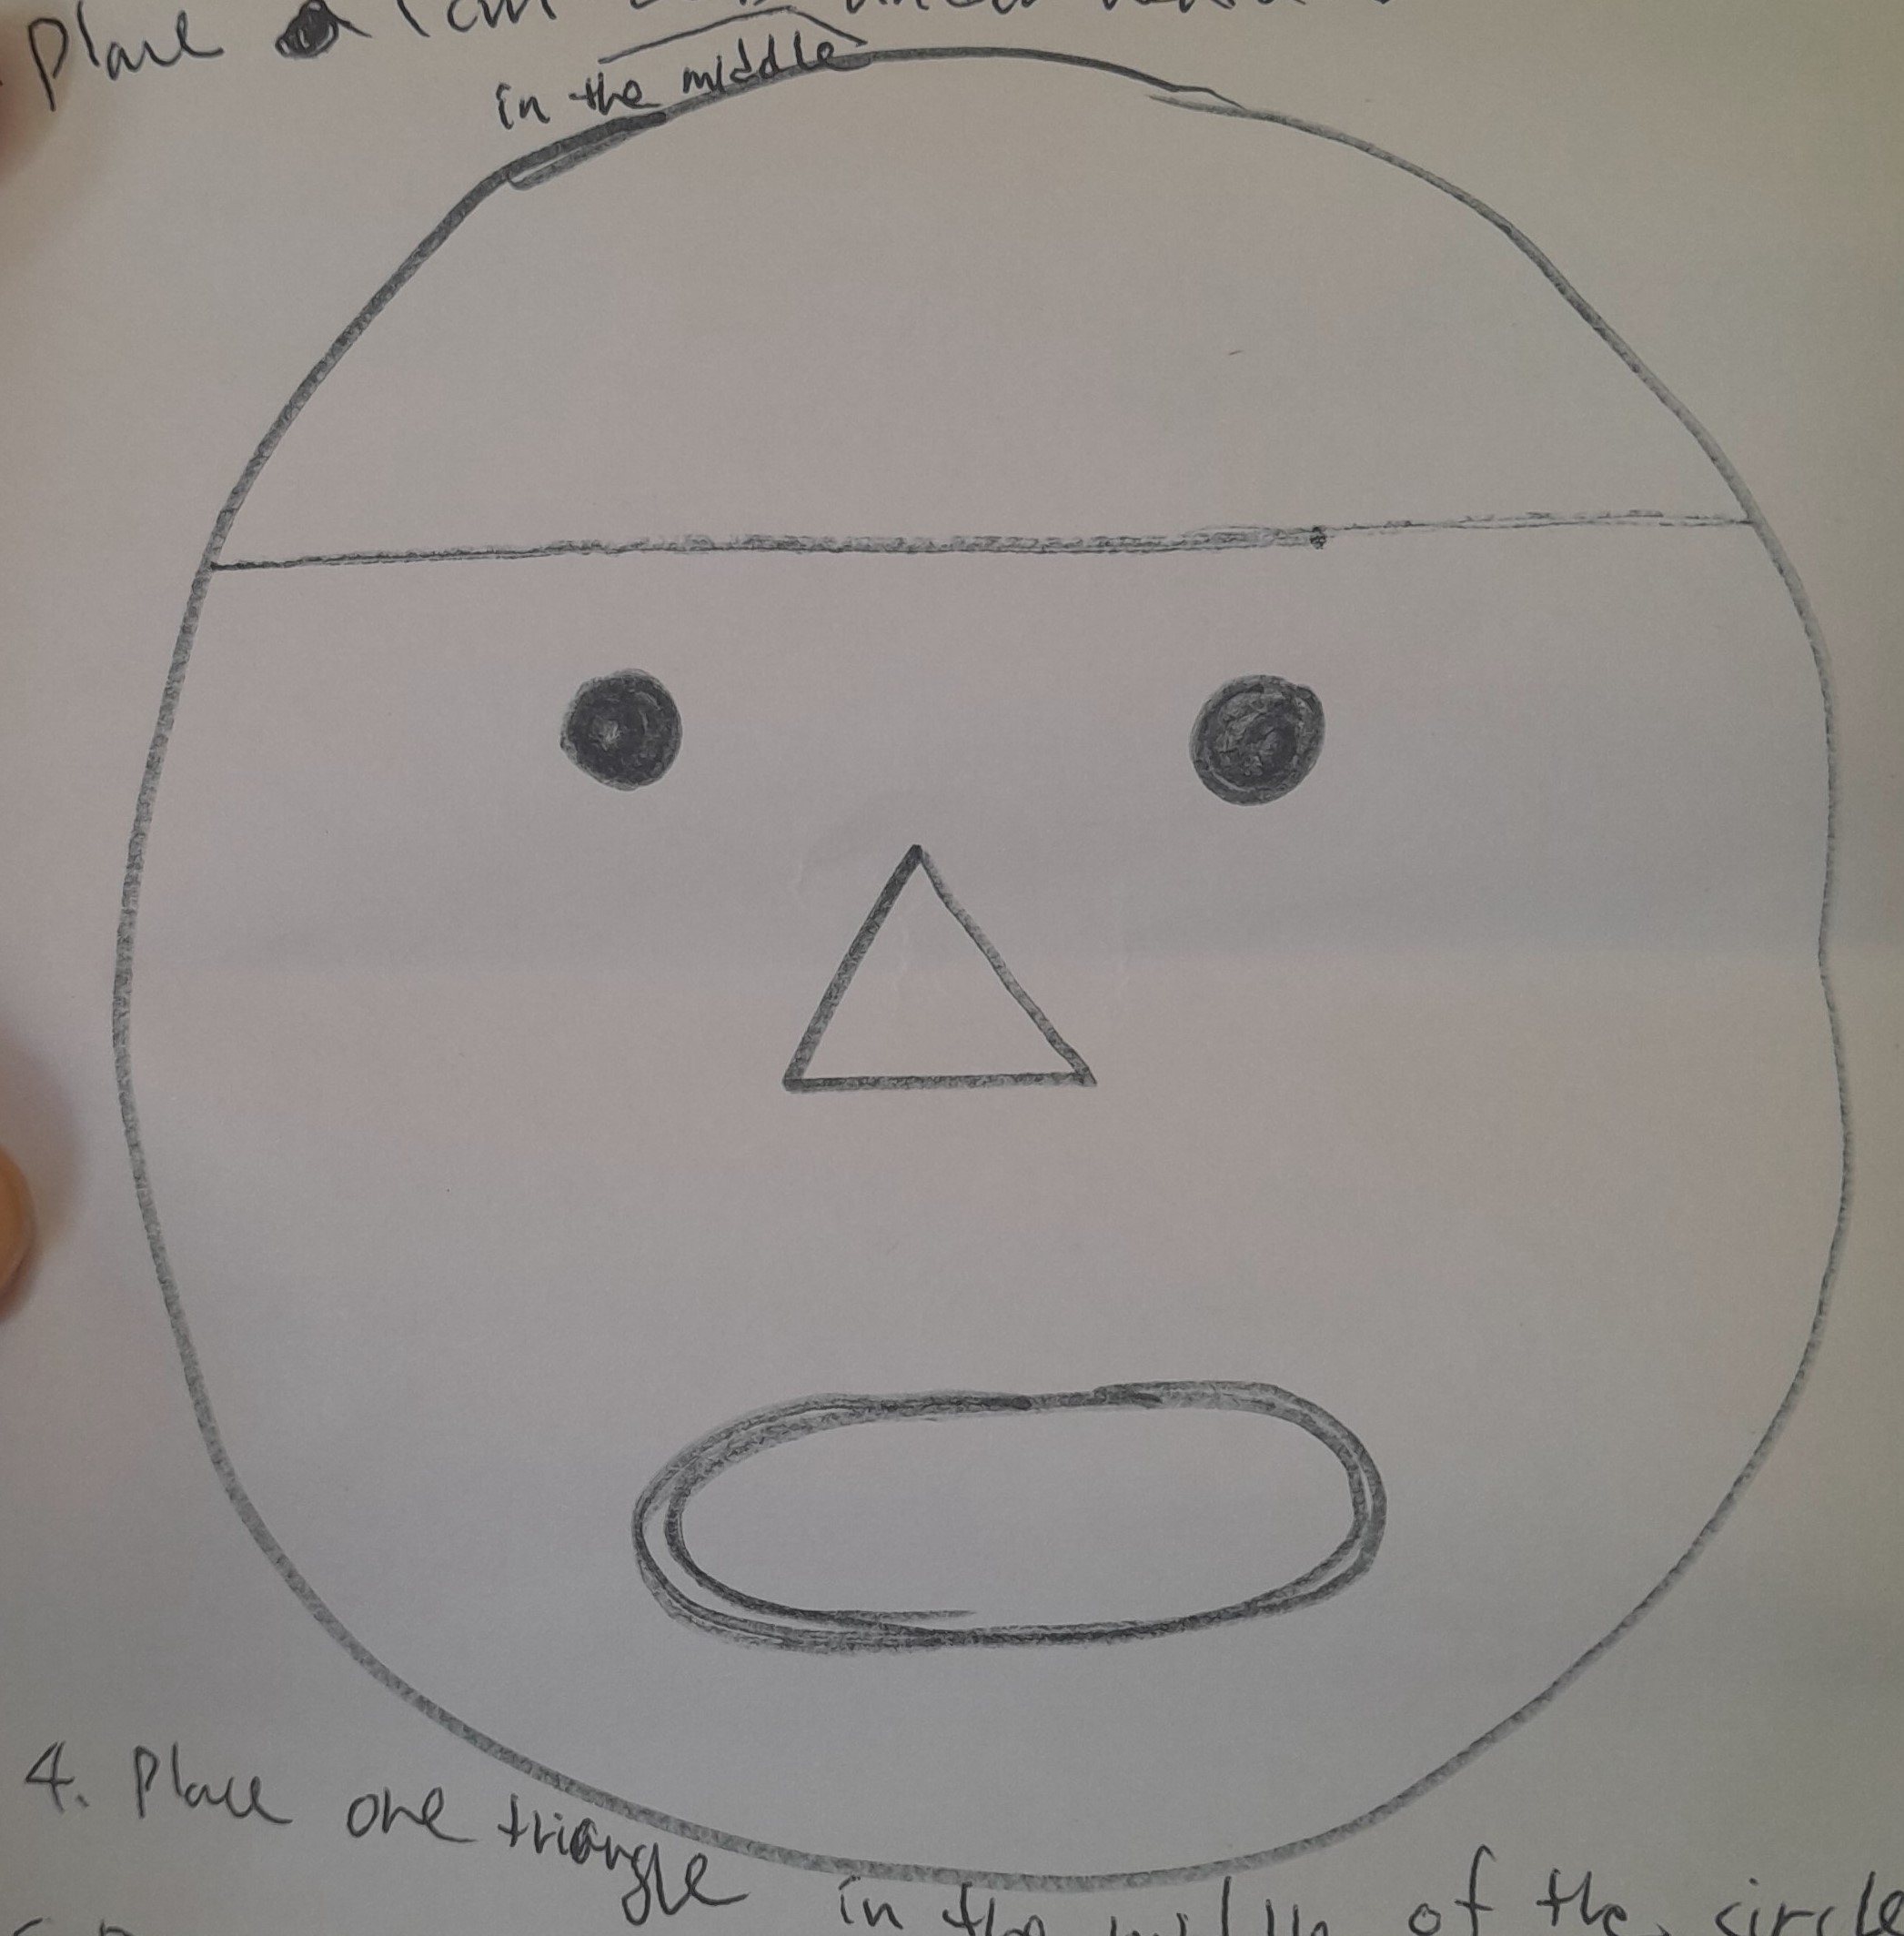 Place 1cm
in the middle
4. Place one triangle in the middle of the circle